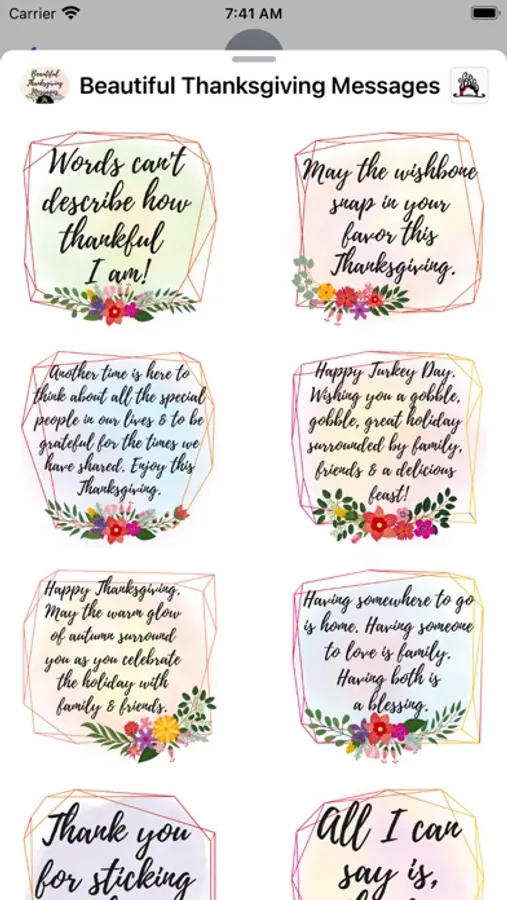 Carrier 7:41 AM
Beautiful Thanksgiving Messages
Words can't
describe how
thankful
I am!
May the wishbone
snap in your
favor this
Thanksgiving.
Another time is here to
think about all the special
people in our lives & to be
grateful for the times we
have shared. Enjoy this
Thanksgiving.
Happy Turkey Day.
Wishing you a gobble,
gobble, great holiday
surrounded by family,
friends & a delicious
feast!
Happy Thanksgiving.
May the warm glow
of autumn surround
you as you celebrate
the holiday with
family & friends.
Having somewhere to go
is home. Having someone
to love is family.
Having both is
a blessing.
Thank you
for sticking
All I can
say is,